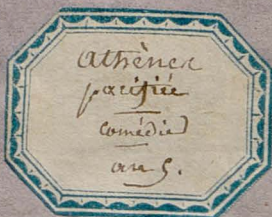 athènes
pacifiée
comédie
an 5.